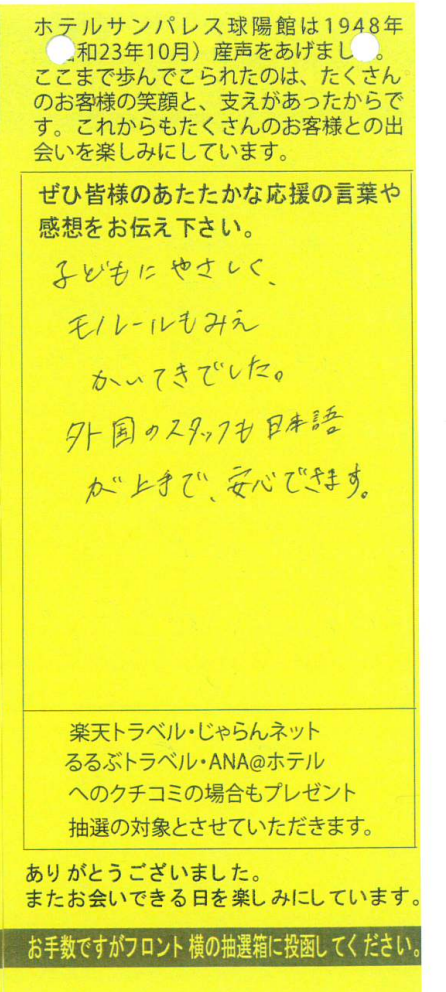 ホテルサンパレス球陽館は1948年
和23年10月）産声をあげまし。
ここまで歩んでこられたのは、たくさん
のお客様の笑顔と、支えがあったからで
す。これからもたくさんのお客様との出
会いを楽しみにしています。
ぜひ皆様のあたたかな応援の言葉や
感想をお伝え下さい。
子どもにやさしく、
モノレールもみえ
かいてきでした。
外国のスタッフも日本語
が上手で、安心できます。
楽天トラベル・じゃらんネット
るるぶトラベル・ANA@ホテル
へのクチコミの場合もプレゼント
抽選の対象とさせていただきます。
ありがとうございました。
またお会いできる日を楽しみにしています。
お手数ですがフロント横の抽選箱に投函してください。